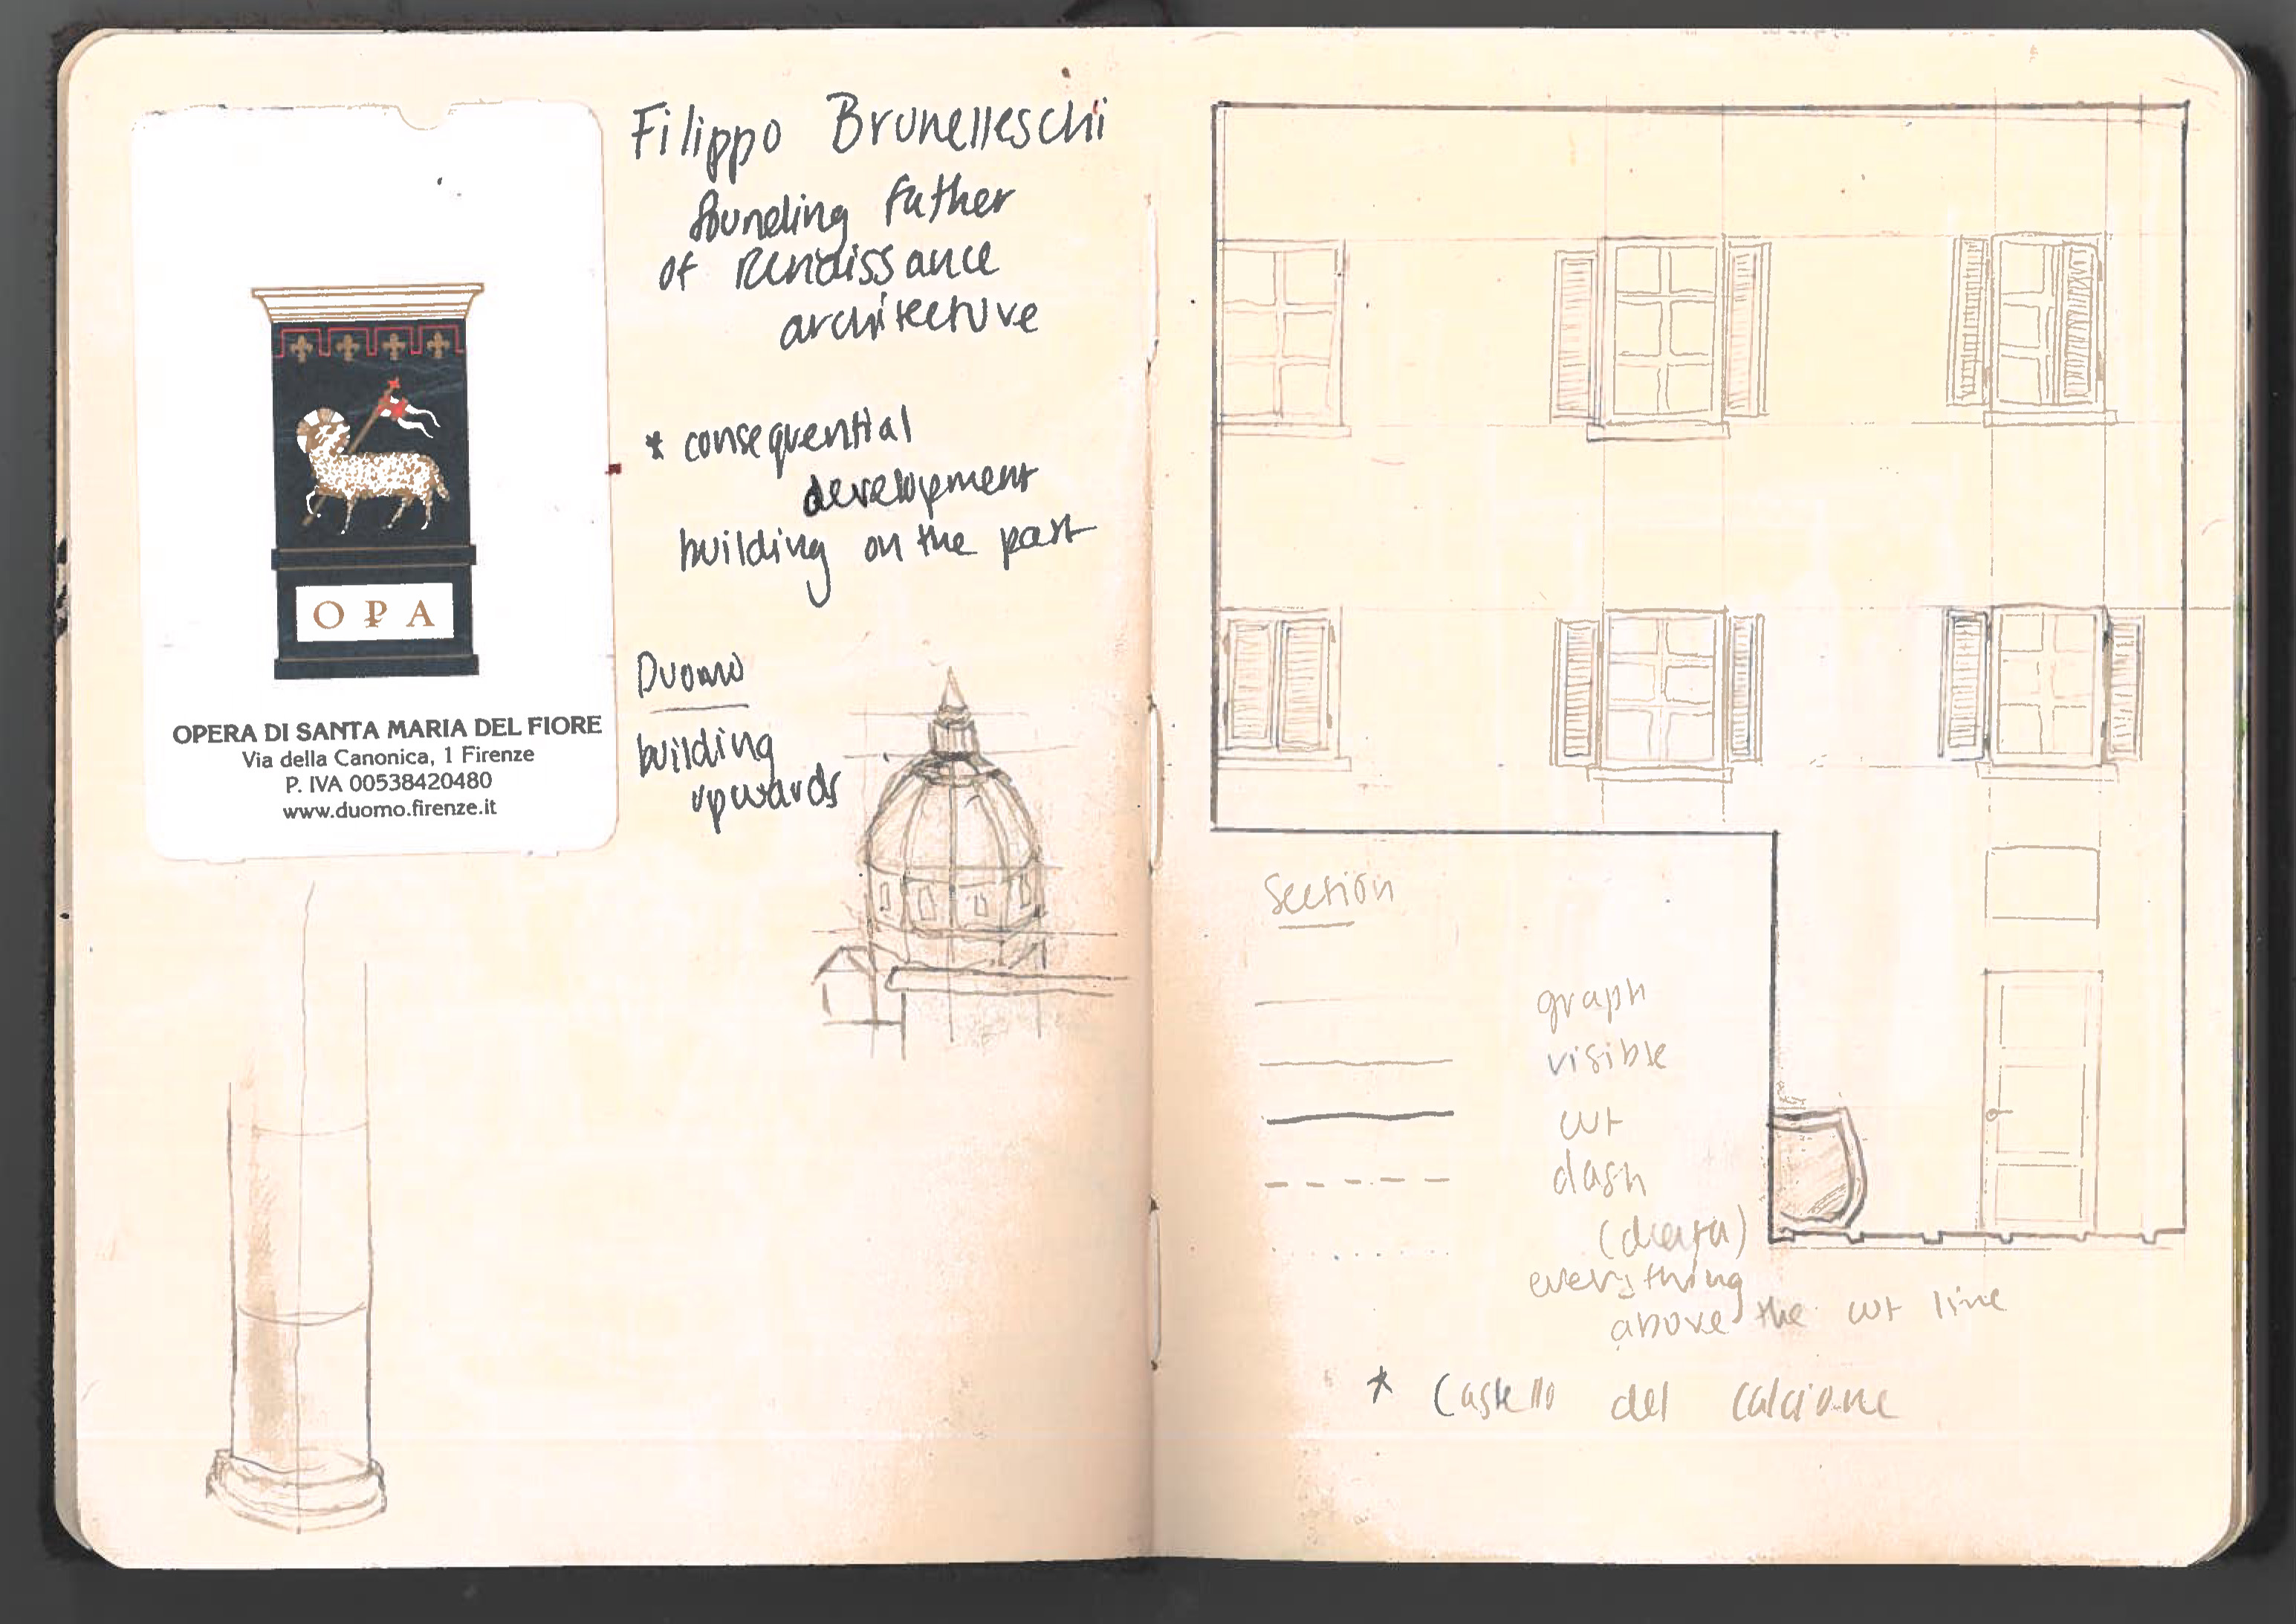 OPA
OPERA DI SANTA MARIA DEL FIORE
Via della Canonica, 1 Firenze
P. IVA 00538420480
www.duomo.firenze.it
Filippo Brunelleschi
founding father
of Renaissance
architecture
* consequential
development
building on the past
Duomo
building
upwards
Section
graph
visible
cut
dash
everything
above the cut line
* Castello del Calcione